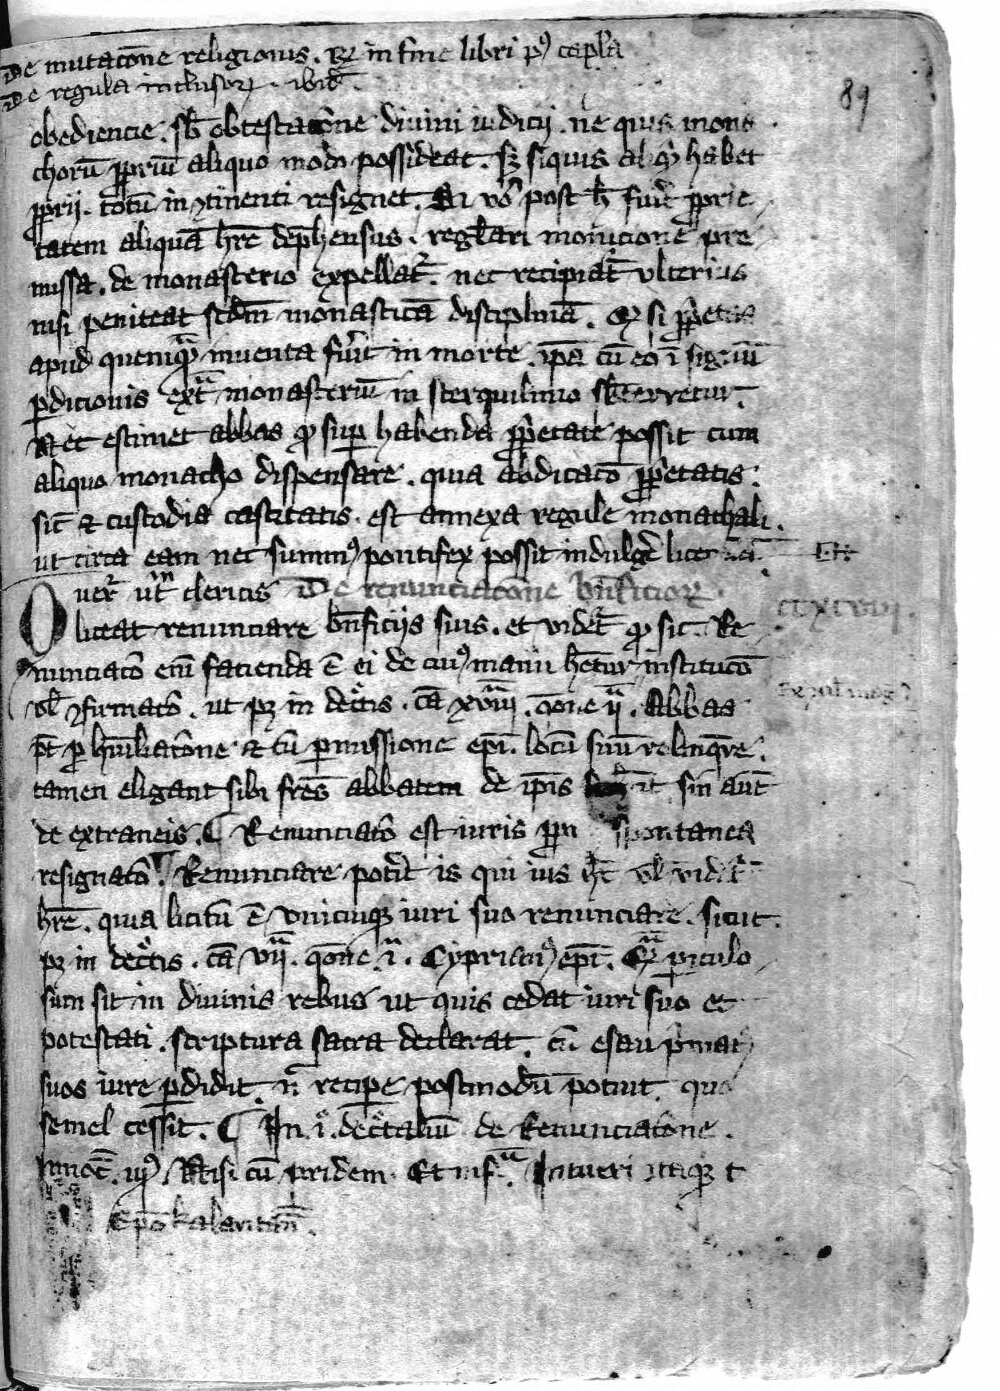 De mutacōne religionis. Rͬ in fine libri pꝰ capl̄a
De regula inclusoꝝ. ibid̄
89
obediencie. sb̄ obtestacōne diuini iudicii. ne quis mona
chorū ꝓpriū aliquo modo possideat. sꝫ siquis aliqͥd habet
ꝓprii. totū in ꝯtinenti resignet. Si vͦ post h̄ fuīt ꝓprie
tatem aliquā hr̄e dep̄hensus. regl̄ari monicione pre
missa. de monasterio expellatᷣ. nec recipiatᷣ vlterius
nisi peniteat scd̄m monasticā disciplinā. Qꝫ si ꝓpͥetas
apud quemqᷓ inuenta fūit in morte. ip̄a cū eo ī signū
ꝑdicionis extᷓ monasteriū in sterquilinio sb̄terretur.
Nec estimet abbas ꝙ suꝑ habenda ꝓpͥetate possit cum
aliquo monacho dispensare. quia abdicacō ꝓpͥetatis.
sic̄ & custodia castitatis. est annexa regule monachali.
ut circa eam nec summꝰ pontifex possit indulgē̄ licenciā.
uerᷣ ut̄ᷤ clericis De renunciacōne bn̄ficioꝝ.
O liceat renunciare bn̄ficiis suis. et videtᷣ ꝙ sic. Re
nunciacō enī facienda ē ei de cuiꝰ manu hētur institucō
vl̄ ꝯfirmacō. ut pꝫ in decͬtis. cā xviii. qōne ii. Abbas
pt̄ ꝓ hūiliacōne & cū ꝑmissione ep̄i. locū suū relinqᷤre.
tamen eligant sibi fr̄es abbatem de ip̄is it sin aūt
de extraneis. ¶ Renunciacō est iuris ꝓpri spontanea
resignacō. ¶ Renunciare potīt is qui ius hꝫ vl̄ videtᷣ
hr̄e. quia licitū ē vnicuiqꝫ iuri suo renunciare. sicut
pꝫ in decͬtis. cā vii. qōne i. Cyprianꝰ ep̄c. Qᷓ ꝑiculo
sum sit in diuinis rebus ut quis cedat iuri suo et
potestati. scriptura sacra declarat. cū esau pͥmatꝰ
suos iure ꝑdidit. n̄ recipe postmodū potuit quod
semel cessit. ¶ In .i. decͬtaliū de Renunciacōne.
Innoc̄. iiiꝰ Nisi cū pridem. Et infᷓ. Intueri itaqꝫ t
Ep̄o kalaritan̄.